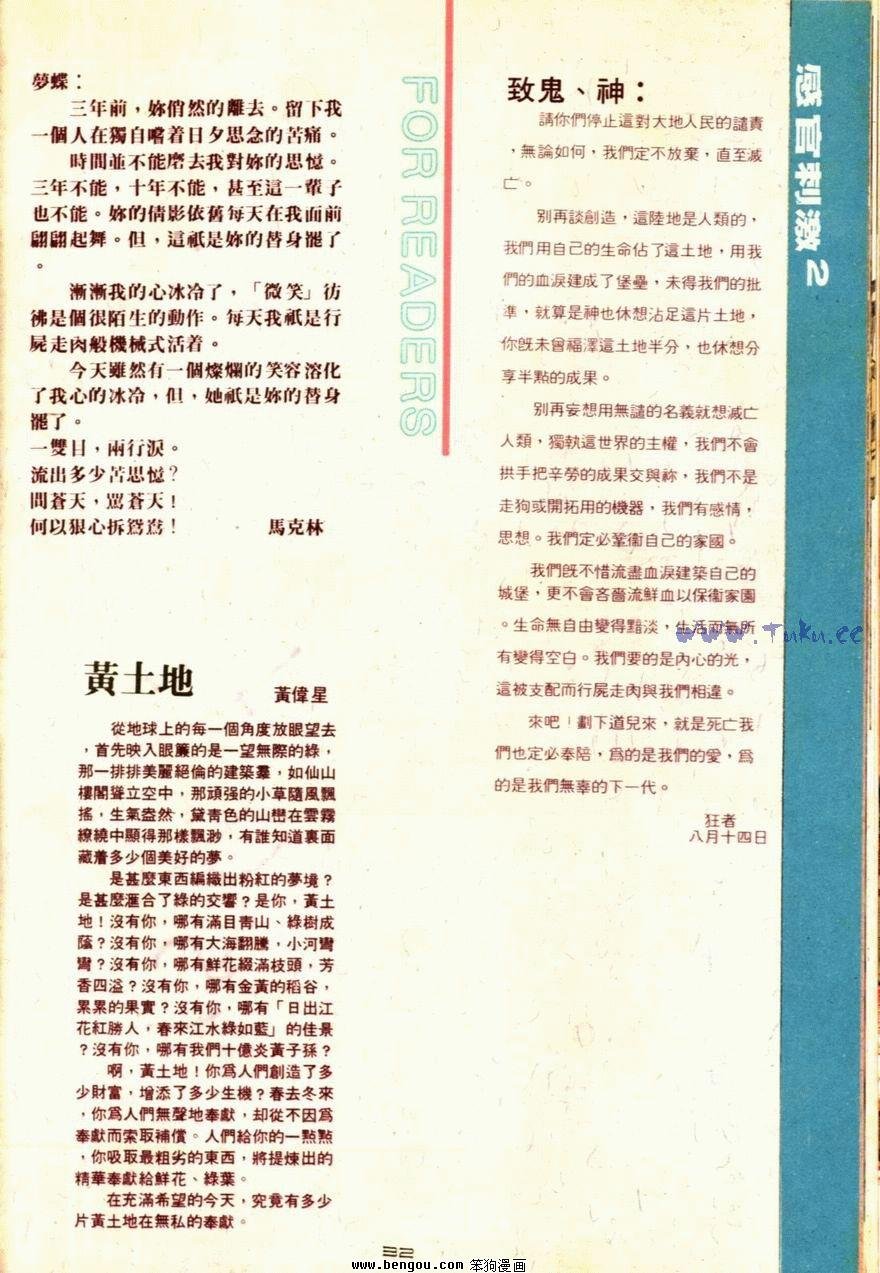 夢蝶：
三年前，妳俏然的離去。留下我
一個人在獨自嚐着日夕思念的苦痛。
時間並不能磨去我對妳的思憶。
三年不能，十年不能，甚至這一輩子
也不能。妳的倩影依舊每天在我面前
翩翩起舞。但，這祇是妳的替身罷了
。
漸漸我的心冰冷了，「微笑」彷
彿是個很陌生的動作。每天我祇是行
屍走肉般機械式活着。
今天雖然有一個燦爛的笑容溶化
了我心的冰冷，但，她祇是妳的替身
罷了。
一雙目，兩行淚。
流出多少苦思憶？
問蒼天，駡蒼天！
何以狠心拆鴛鴦！ 馬克林
黃土地
黃偉星
從地球上的每一個角度放眼望去
，首先映入眼簾的是一望無際的綠，
那一排排美麗絕倫的建築羣，如仙山
樓閣聳立空中，那頑强的小草隨風飄
搖，生氣盎然，黛青色的山巒在雲霧
繚繞中顯得那樣飄渺，有誰知道裏面
藏着多少個美好的夢。
是甚麼東西編織出粉紅的夢境？
是甚麼滙合了綠的交響？是你，黃土
地！沒有你，哪有滿目青山、綠樹成
蔭？沒有你，哪有大海翻騰，小河彎
彎？沒有你，哪有鮮花綴滿枝頭，芳
香四溢？沒有你，哪有金黃的稻谷，
累累的果實？沒有你，哪有「日出江
花紅勝人，春來江水綠如藍」的佳景
？沒有你，哪有我們十億炎黃子孫？
啊，黃土地！你爲人們創造了多
少財富，增添了多少生機？春去冬來
，你爲人們無聲地奉獻，却從不因爲
奉獻而索取補償。人們給你的一點點
，你吸取最粗劣的東西，將提煉出的
精華奉獻給鮮花、綠葉。
在充滿希望的今天，究竟有多少
片黃土地在無私的奉獻。
FOR READERS
致鬼、神：
請你們停止這對大地人民的譴責
，無論如何，我們定不放棄，直至滅
亡。
別再談創造，這陸地是人類的，
我們用自己的生命佔了這土地，用我
們的血淚建成了堡壘，未得我們的批
準，就算是神也休想沾足這片土地，
你旣未曾福澤這土地半分，也休想分
享半點的成果。
別再妄想用無譴的名義就想滅亡
人類，獨執這世界的主權，我們不會
拱手把辛勞的成果交與祢，我們不是
走狗或開拓用的機器，我們有感情，
思想。我們定必鞏衞自己的家國。
我們旣不惜流盡血淚建築自己的
城堡，更不會吝嗇流鮮血以保衞家園
。生命無自由變得黯淡，生活而氣所
有變得空白。我們要的是內心的光，
這被支配而行屍走肉與我們相違。
來吧！劃下道兒來，就是死亡我
們也定必奉陪，爲的是我們的愛，爲
的是我們無辜的下一代。
狂者
八月十四日
感官刺激2
www.Tuku.cc
32
www.bengou.com 笨狗漫画